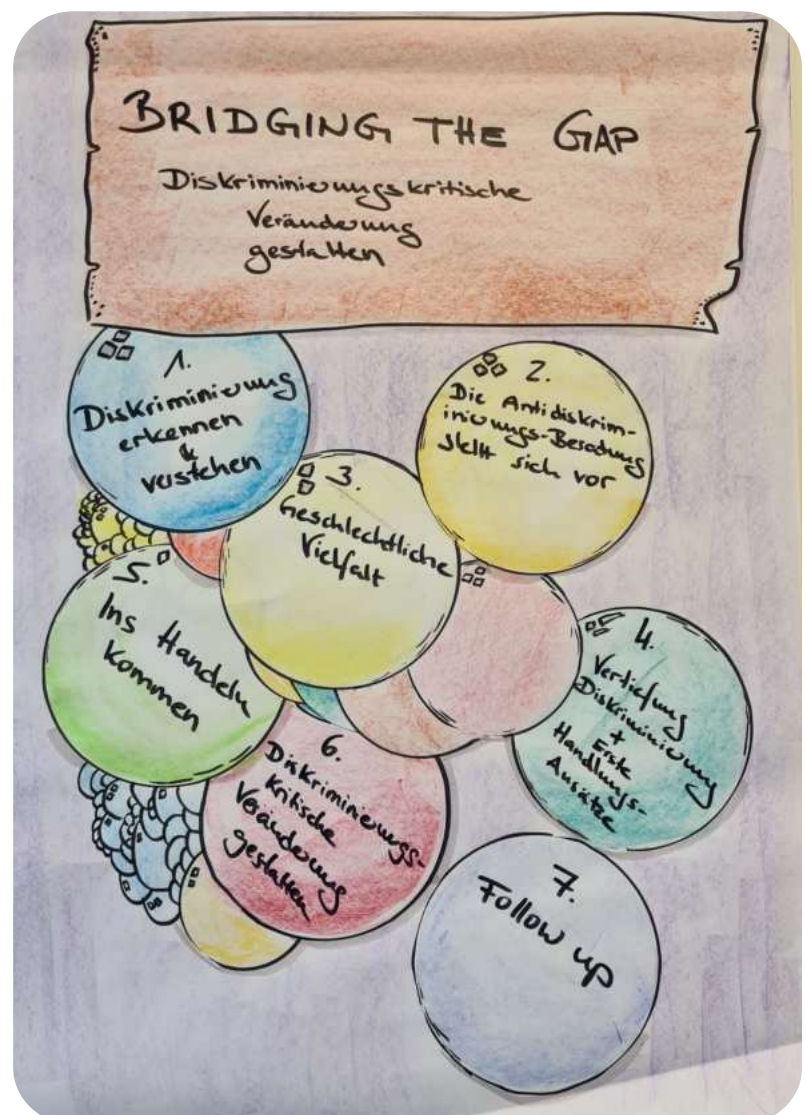 BRIDGING THE GAP
Diskriminierungskritische
Veränderung
gestalten
1.
Diskriminierung
erkennen
&
verstehen
2.
Die Antidiskrim-
inierungs-Beratung
stellt sich vor
3.
Geschlechtliche
Vielfalt
4.
Vertiefung
Diskriminierung
+
Erste
Handlungs-
Ansätze
5.
Ins Handeln
kommen
6.
Diskriminierungs-
kritische
Veränderung
gestalten
7.
Follow up